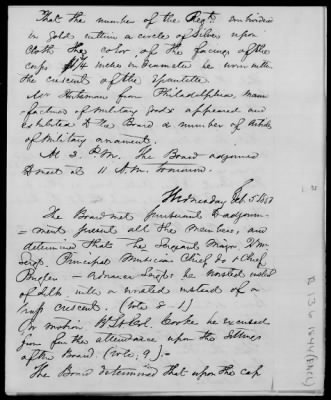 That the number of the Regt. embroidered
in gold within a circle of silver upon
cloth the color of the facings of the
corps 1¼ inches in diameter be worn within
the crescent of the epaulette.
Mr. Horstman from Philadelphia, manu
facturer of Military goods appeared and
exhibited to the Board a number of articles
of Military ornament.
At 3. P.M. The Board adjourned
to meet at 11 A.M. tomorrow.
Wednesday Feb. 5
The Board met pursuant to adjourn-
-ment present all the members, and
determined that the Sergeant Major, Q M
Sergt. Principal Musician Chief do & Chief
Bugler - Ordnance Sergts be worsted instead
of silk, with a worsted instead of a
brass crescent. (vote 8 - 1)
On motion, Lt Col. Cooke be excused
from further attendance upon the sittings
of the Board. (vote, 9). -
The Board determined that upon the cap